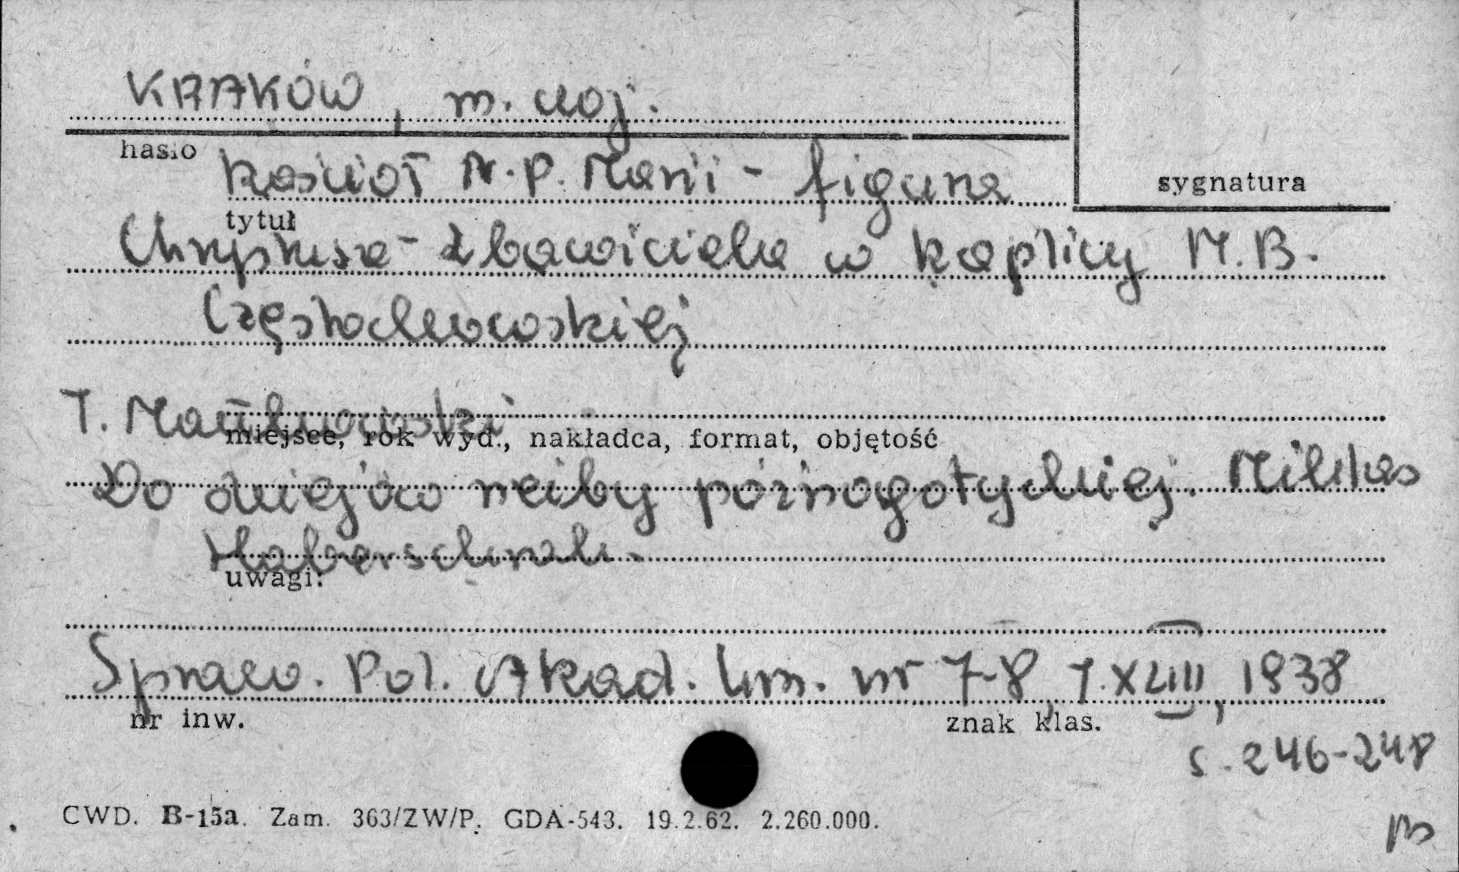 KRAKÓW, m. woj.
hasło
kościół N.P. Marii - figura
sygnatura
tytuł
Chrystusa - Zbawiciela w kaplicy M.B.
Częstochowskiej
T. Mańkowski
miejsce, rok wyd., nakładca, format, objętość
Do dziejów rzeźby późnogotyckiej. Milches
Haberschrak.
uwagi:
Spraw. Pol. Akad. Um. nr 7-8, T. XLIII, 1938
nr inw.
znak klas.
s. 246-248
CWD. B-15a. Zam. 363/ZW/P. GDA-543. 19.2.62. 2.260.000.